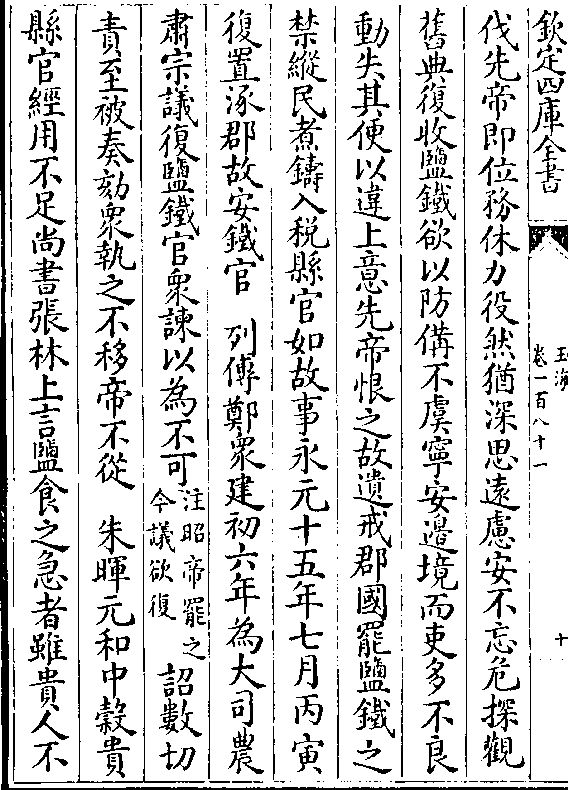 欽定四庫全書
玉海
卷一百八十一
十
伐先帝即位務休力役然猶深思遠慮安不忘危探觀
舊典復收鹽鐵欲以防備不虞寧安邊境而吏多不良
動失其便以違上意先帝恨之故遺戒郡國罷鹽鐵之
禁縱民煮鑄入税縣官如故事永元十五年七月丙寅
復置涿郡故安鐵官 列傳鄭衆建初六年為大司農
肅宗議復鹽鐵官衆諫以為不可注昭帝罷之今議欲復詔數切
責至被奏劾衆執之不移帝不從 朱暉元和中穀貴
縣官經用不足尚書張林上言鹽食之急者雖貴人不